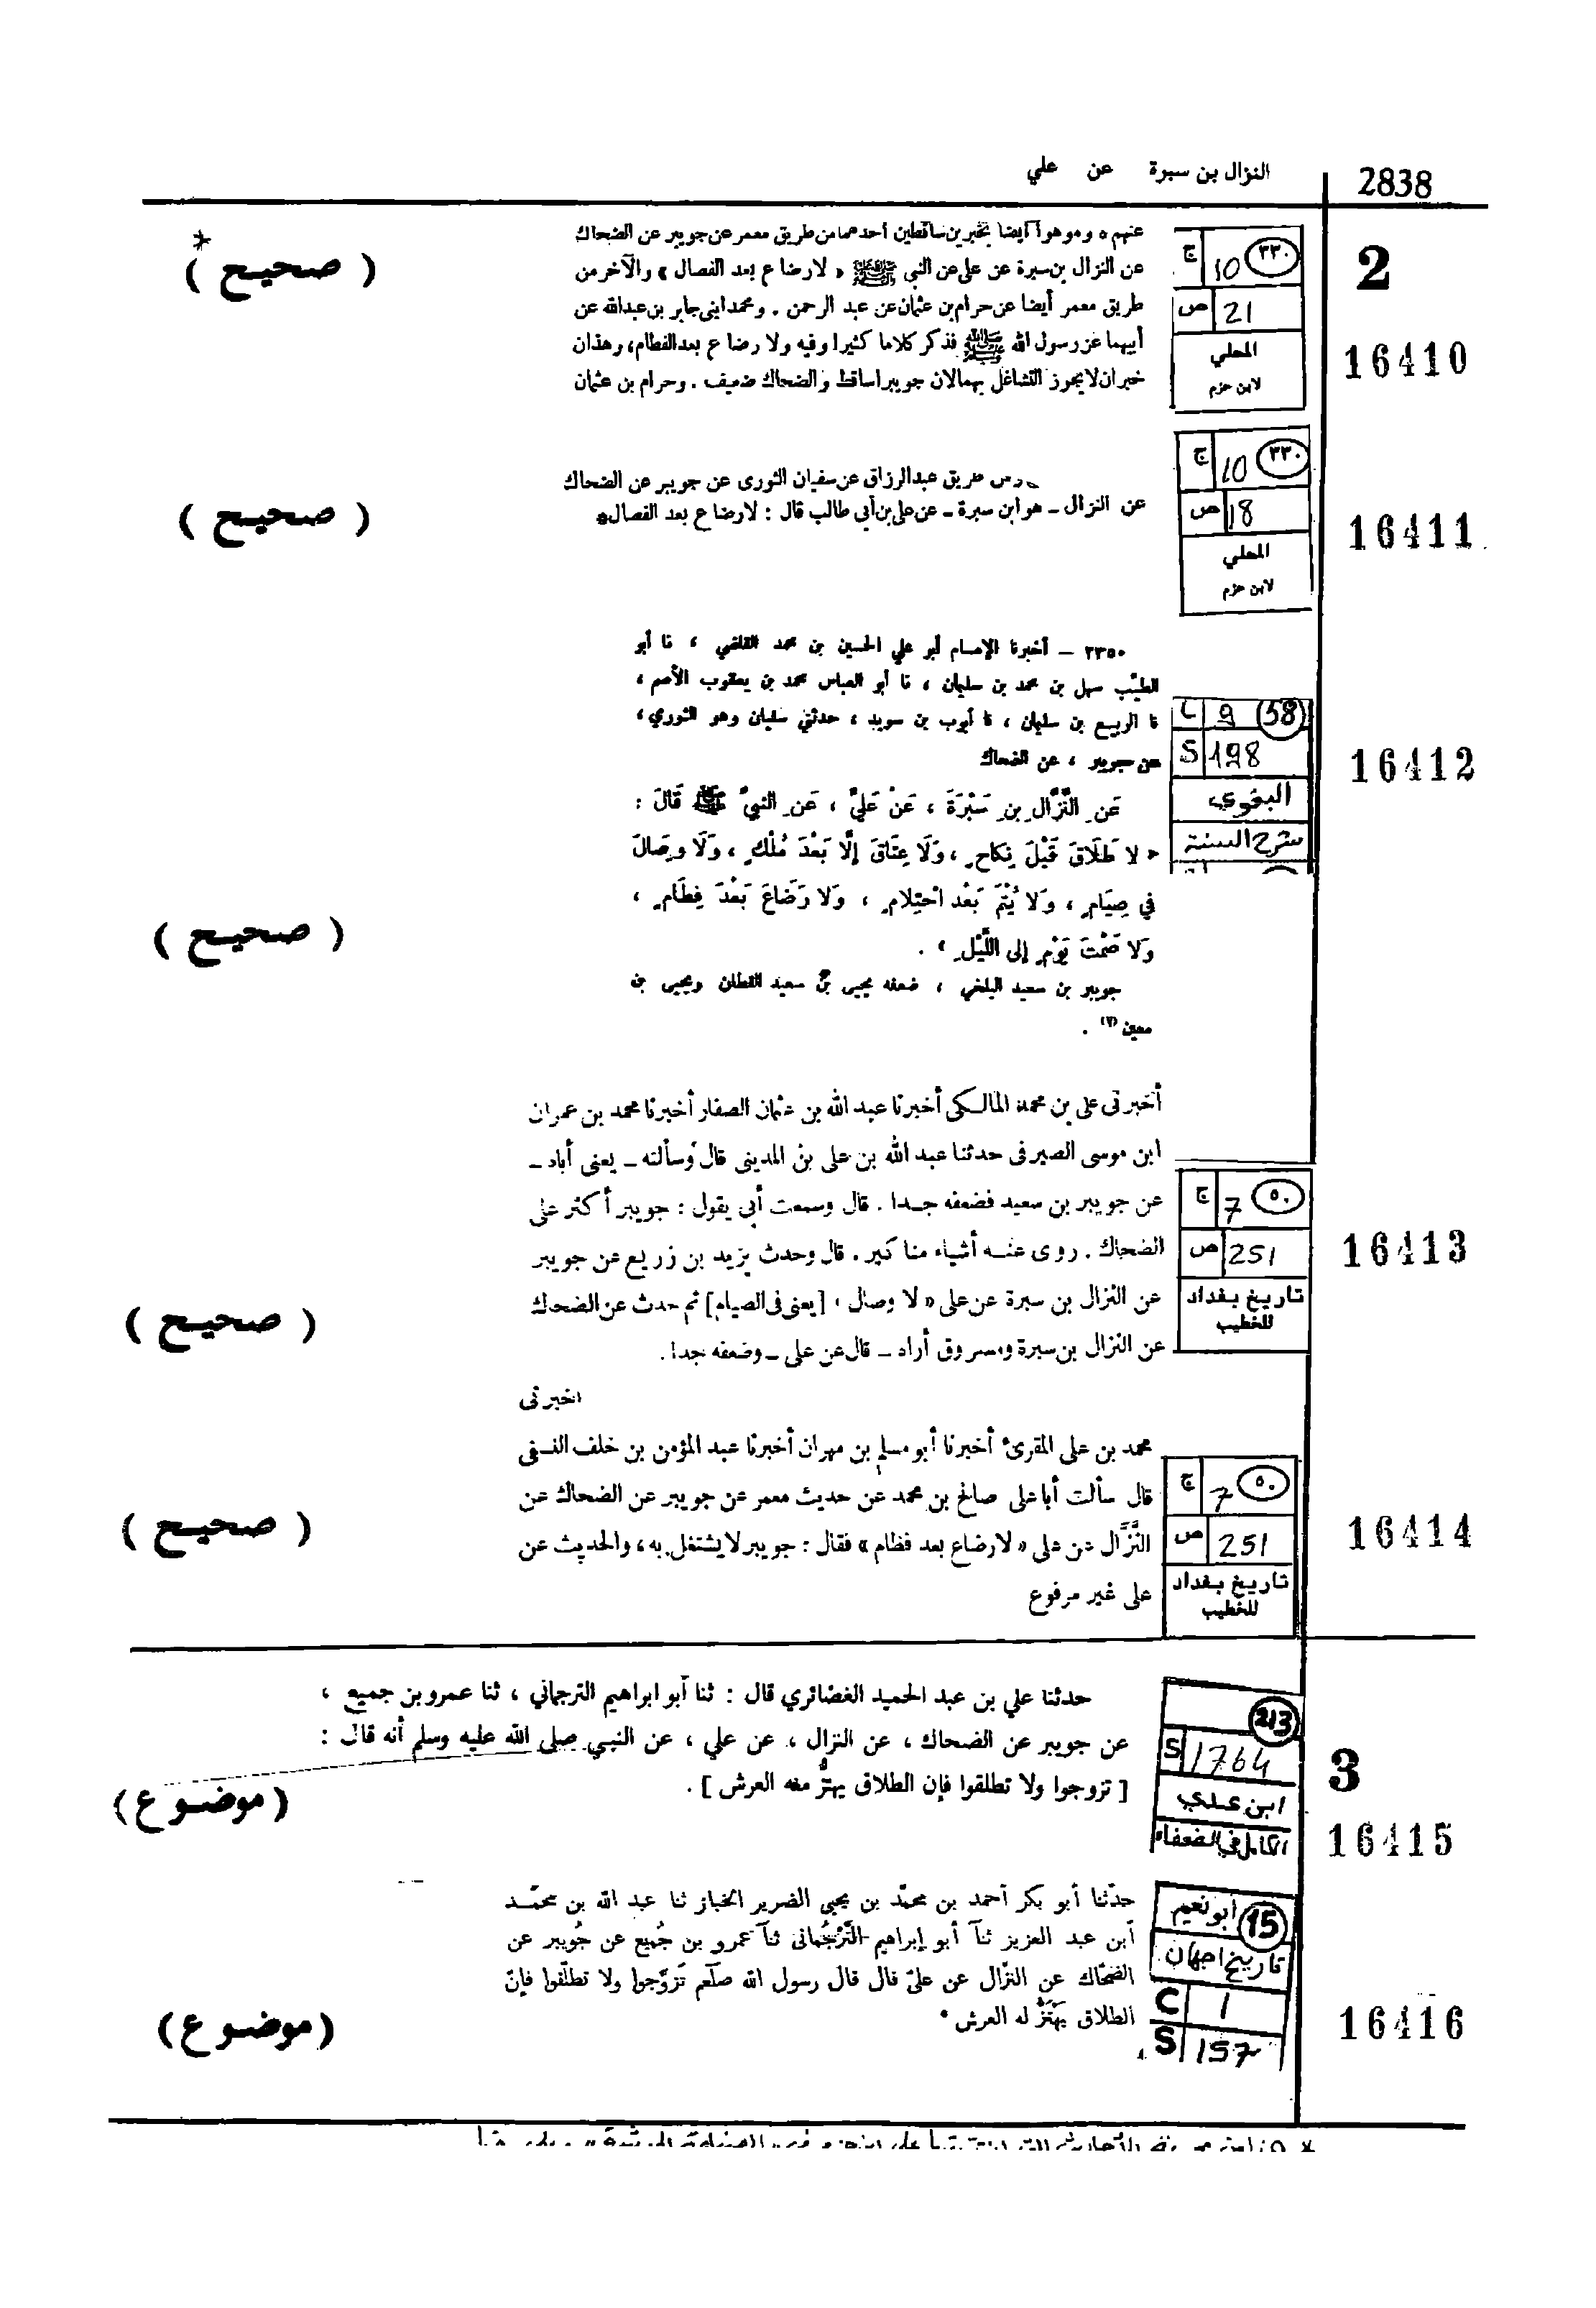 2838
النزال بن سبرة عن علي
2
16410
ج 10 ٣٣٠
ص 21
المحلي
لابن حزم
عنهم ٥ وموهوا أيضا بخبرين ساقطين أحدهما من طريق معمر عن جويبر عن الضحاك
عن النزال بن سبرة عن علي عن النبي ﷺ « لا رضاع بعد الفصال » والآخر من
طريق معمر أيضا عن حرام بن عثمان عن عبد الرحمن . ومحمد ابني جابر بن عبدالله عن
أبيهما عن رسول الله ﷺ فذكر كلاما كثيرا وفيه ولا رضاع بعد الفطام، وهذان
خبران لا يجوز التشاغل بهما لان جويبرا ساقط والضحاك ضعيف . وحرام بن عثمان
*
( صحيح )
16411
ج 10 ٣٣٠
ص 18
المحلي
لابن حزم
طريق عبدالرزاق عن سفيان الثورى عن جويبر عن الضحاك
عن النزال ـ هو ابن سبرة ـ عن على بن أبى طالب قال : لا رضاع بعد الفصال*
( صحيح )
16412
C 9 (38)
S 198
البغوي
شرح السنة
٢٣٥٠ – أخبرنا الإمام أبو علي الحسين بن محمد القاضي ، نا أبو
الطيّب سهل بن محمد بن سليمان ، نا أبو العباس محمد بن يعقوب الأصم ،
نا الربيع بن سليمان ، نا أيوب بن سويد ، حدثني سفيان وهو الثوري ،
عن جويبر ، عن الضحاك
عَنِ النَّزَّالِ بنِ سَبْرَةَ ، عَنْ عَليٍّ ، عَنِ النبيِّ ﷺ قَالَ :
« لا طَلَاقَ قَبْلَ نِكاحٍ ، وَلَا عِتَاقَ إلَّا بَعْدَ مُلْكٍ ، وَلَا وِصَالَ
في صِيَامٍ ، وَلا يُتْمَ بَعْدَ احْتِلامٍ ، وَلا رَضَاعَ بَعْدَ فِطَامٍ ،
وَلا صَمْتَ يَوْمٍ إلى اللَّيْلِ » .
جويبر بن سعيد البلخي ، ضعفه يحيى بن سعيد القطان ويحيى بن
معين (٢) .
( صحيح )
16413
ج 7 ٥٠
ص 251
تاريخ بغداد
للخطيب
أخبرنى على بن محمد المالكى أخبرنا عبد الله بن عثمان الصفار أخبرنا محمد بن عمران
ابن موسى الصيرفى حدثنا عبد الله بن على بن المدينى قال وسألته ـ يعنى أباه ـ
عن جويبر بن سعيد فضعفه جدا . قال وسمعت أبى يقول : جويبر أكثر على
الضحاك . روى عنه أشياء مناكير . قال وحدث يزيد بن زريع عن جويبر
عن النزال بن سبرة عن على « لا وصال » [ يعنى فى الصيام ] ثم حدث عن الضحاك
عن النزال بن سبرة ومسروق أراه ـ قال عن على ـ وضعفه جدا .
( صحيح )
16414
ج 7 ٥٠
ص 251
تاريخ بغداد
للخطيب
أخبرنى
محمد بن على المقرئ أخبرنا أبو مسلم بن مهران أخبرنا عبد المؤمن بن خلف النسفى
قال سألت أبا على صالح بن محمد عن حديث معمر عن جويبر عن الضحاك عن
النَّزَّال عن على « لا رضاع بعد فطام » فقال : جويبر لا يشتغل به ، والحديث عن
على غير مرفوع
( صحيح )
3
16415
213
S 1764
ابن عدي
الكامل في الضعفاء
حدثنا علي بن عبد الحميد الغضائري قال : ثنا أبو ابراهيم الترجماني ، ثنا عمرو بن جميع ،
عن جويبر عن الضحاك ، عن النزال ، عن علي ، عن النبي صلى الله عليه وسلم أنه قال :
[ تزوجوا ولا تطلقوا فإن الطلاق يهتزُّ منه العرش ] .
(موضوع)
16416
ابو نعيم 15
تاريخ اصبهان
C 1
S 157
حدّثنا أبو بكر أحمد بن محمّد بن يحيى الضرير الخباز ثنا عبد الله بن محمّد
أبن عبد العزيز ثنا أبو إبراهيم التَّرْجُمانى ثنا عمرو بن جُميع عن جُويبر عن
الضحّاك عن النزّال عن علىّ قال قال رسول الله صلّعم تَزوَّجوا ولا تطلّقوا فإنّ
الطلاق يَهْتَزُّ له العرش *
(موضوع)